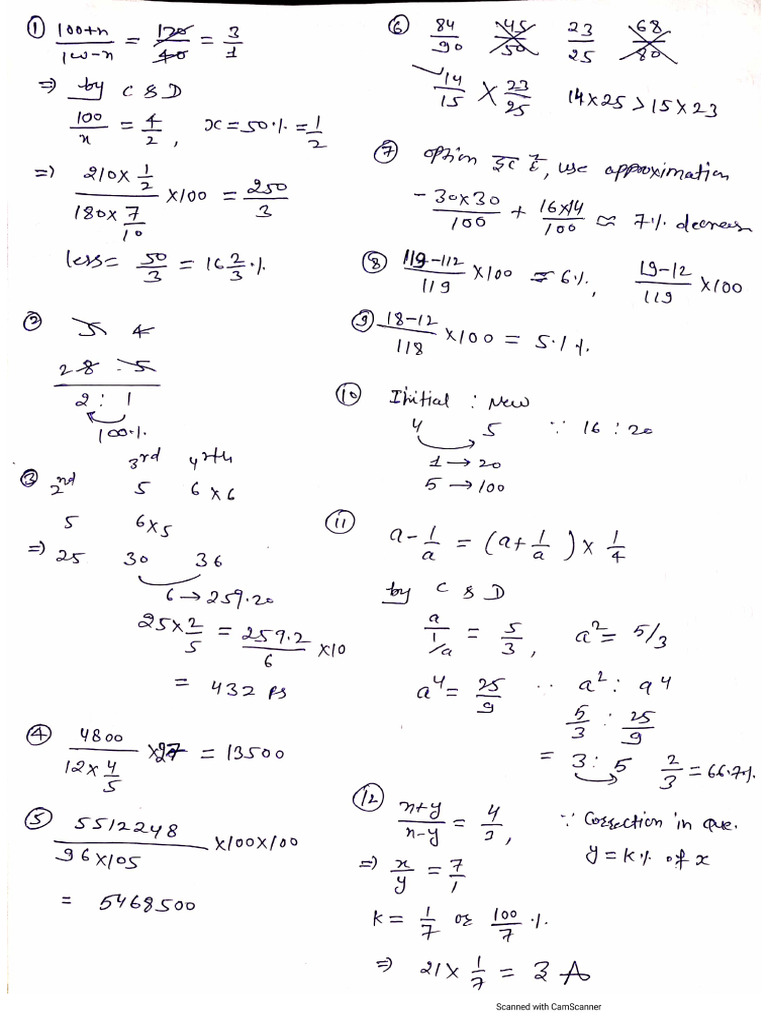 ① (100+x)/(100-x) = 120/40 = 3/1
⇒ by C & D
100/x = 4/2 , x = 50% = 1/2
⇒ (210 × 1/2)/(180 × 7/10) × 100 = 250/3
less = 50/3 = 16 2/3 %
② 5 4
28 : 5
2 : 1
100%
③ 2nd 3rd 4rth
5 6 × 6
5 6 × 5
⇒ 25 30 36
6 → 259.20
25 × 2/5 = 259.2/6 × 10
= 432 Rs
④ 4800/(12 × 4/5) × 27 = 13500
⑤ 5512248/(96 × 105) × 100 × 100
= 5468500
⑥ 84/90 45/50 23/25 68/80
14/15 × 23/25 14 × 25 > 15 × 23
⑦ option दूर है, use approximation
- 30×30/100 + 16×14/100 ≈ 7% decrease
⑧ (119-112)/119 × 100 ≈ 6% , (19-12)/119 × 100
⑨ (18-12)/118 × 100 = 5.1%
⑩ Initial : New
4 5 ∵ 16 : 20
1 → 20
5 → 100
⑪ a - 1/a = (a + 1/a) × 1/4
by C & D
a/(1/a) = 5/3 , a² = 5/3
a⁴ = 25/9 ∵ a² : a⁴
5/3 : 25/9
= 3 : 5 2/3 = 66.7%
⑫ (x+y)/(x-y) = 4/3 , ∵ Correction in Que.
⇒ x/y = 7/1 y = k% of x
k = 1/7 or 100/7 %
⇒ 21 × 1/7 = 3 A
Scanned with CamScanner